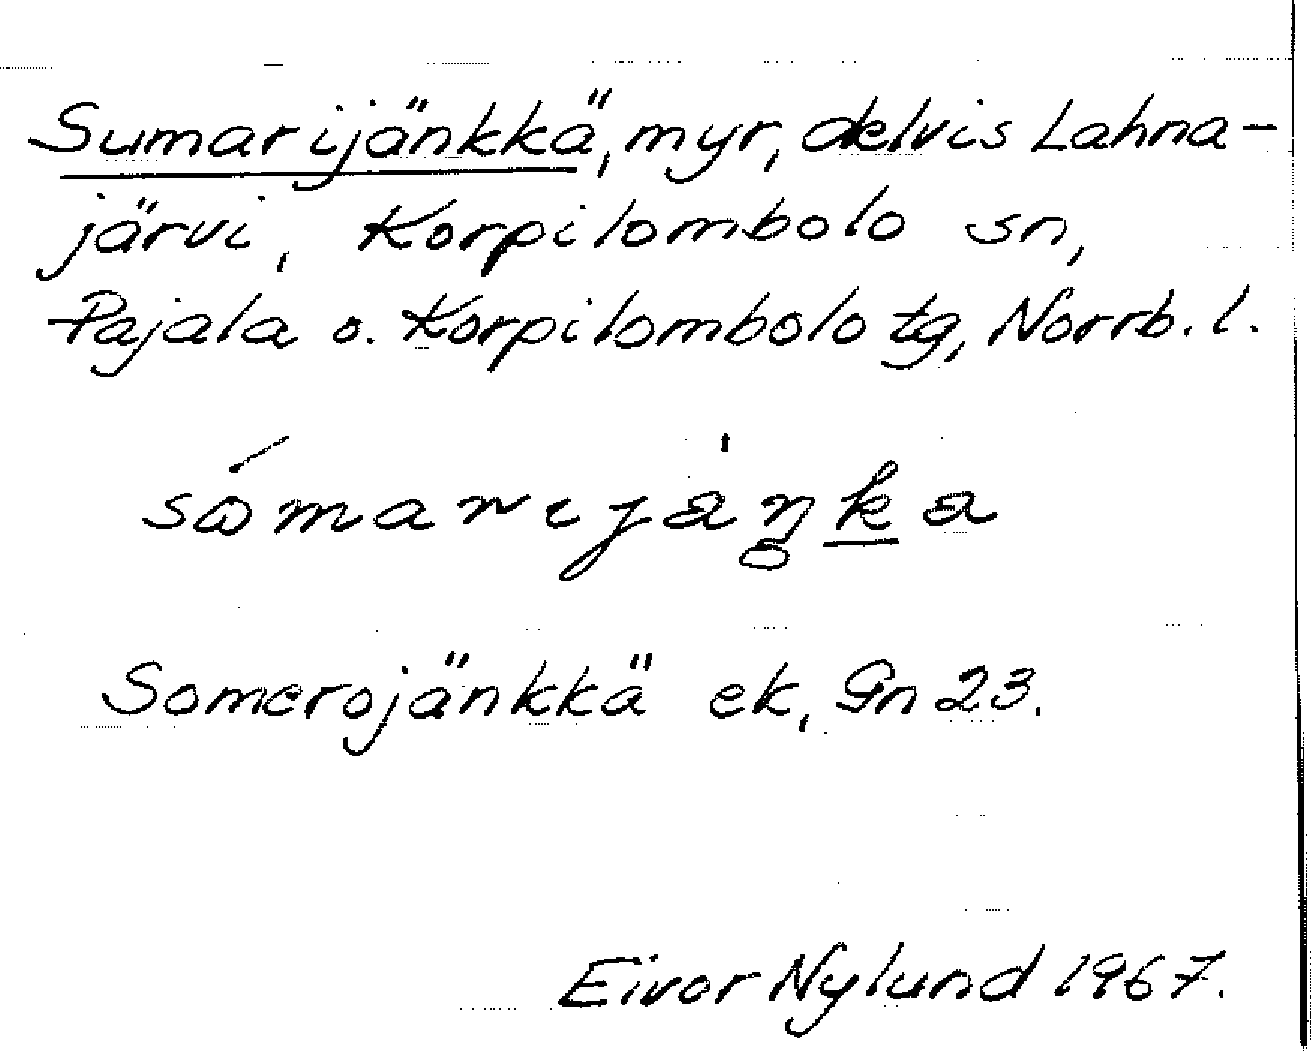 Sumarijänkkä, myr, delvis Lahna-
järvi, Korpilombolo sn,
Pajala o. Korpilombolo tg, Norrb. l.
Somerojänkkä ek, Gn 23.
Eivor Nylund 1967.